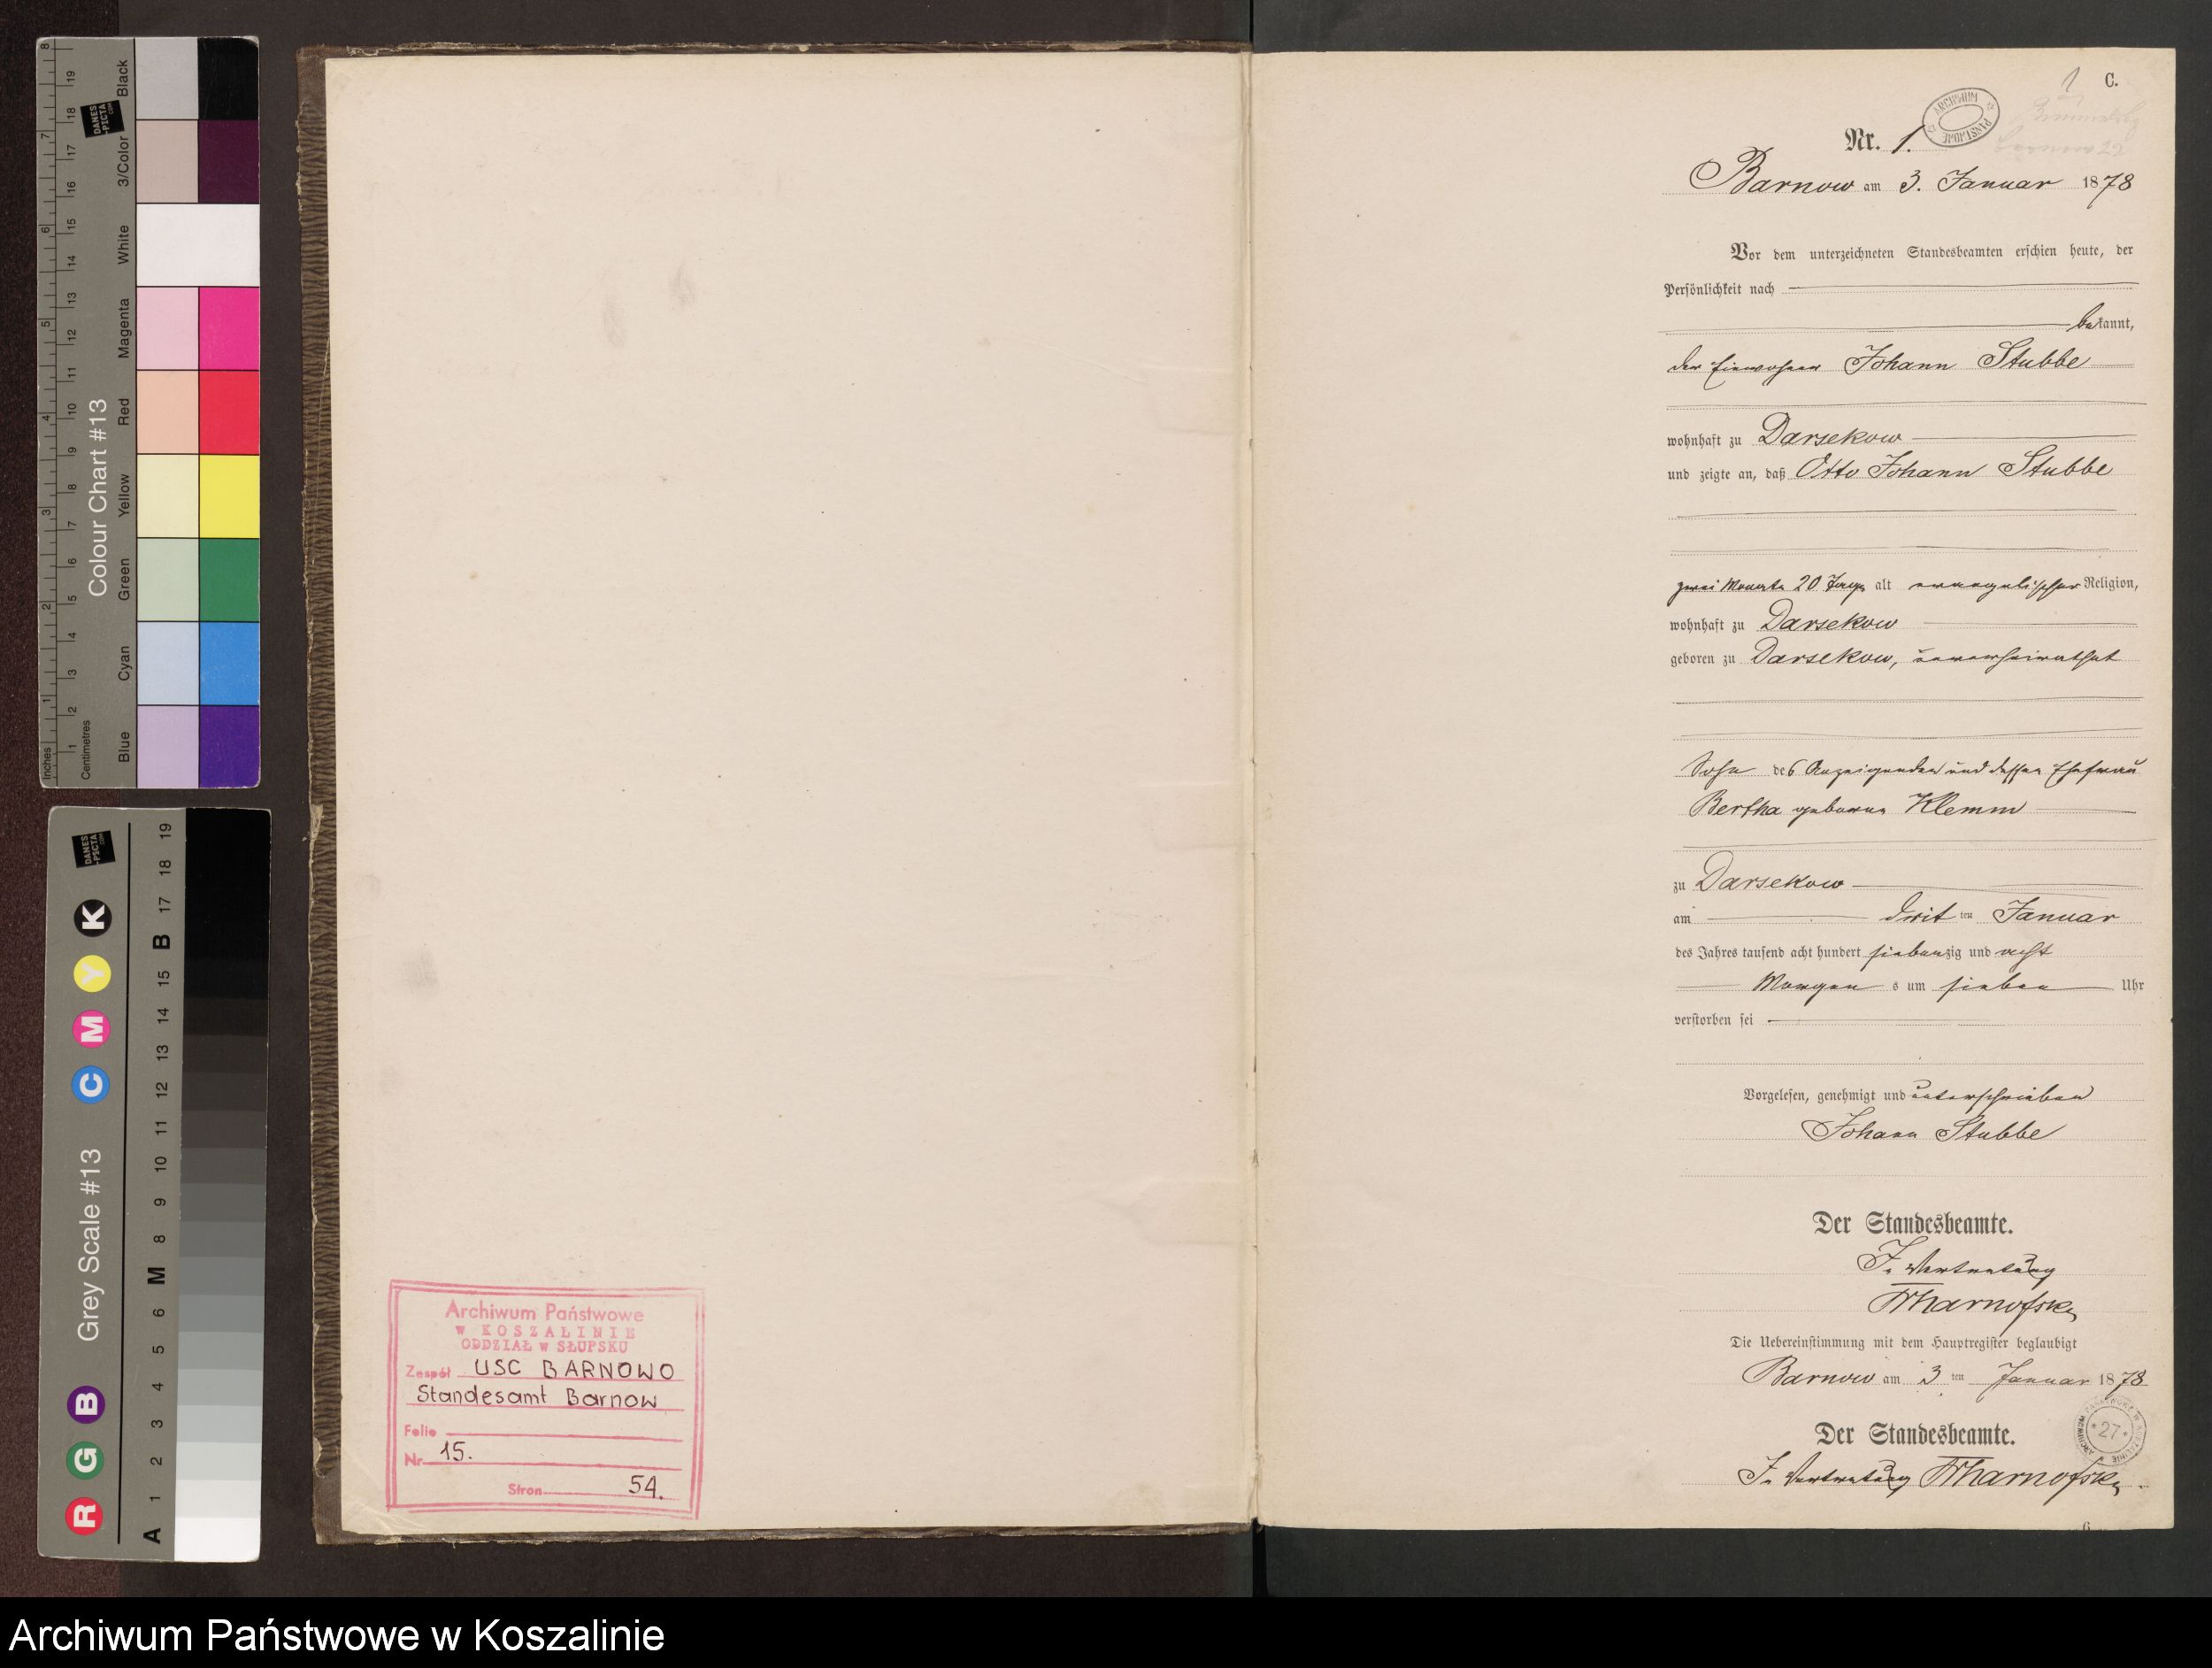 8
19
18
7
17
16
6
15
14
13
5
12
11
4
10
9
3
8
7
6
2
5
4
1
3
2
1
Inches
Centimetres
DANES
-PICTA
.COM
Colour Chart #13
Black
3/Color
White
Magenta
Red
Yellow
Green
Cyan
Blue
DANES
-PICTA
.COM
Grey Scale #13
R G B C M Y K
A 1 2 3 4 5 6 M 8 9 10 11 12 13 14 15 B 17 18 19
Archiwum Państwowe
w KOSZALINIE
ODDZIAŁ w SŁUPSKU
Zespół USC BARNOWO
Standesamt Barnow
Folio
Nr 15.
Stron 54.
1 C.
ARCHIWUM PAŃSTWOWE
Nr. 1.
Barnow am 3. Januar 1878
Vor dem unterzeichneten Standesbeamten erschien heute, der
Persönlichkeit nach
bekannt,
der Einwohner Johann Stubbe
wohnhaft zu Darsekow
und zeigte an, daß Otto Johann Stubbe
zwei Monate 20 Tage alt evangelischer Religion,
wohnhaft zu Darsekow
geboren zu Darsekow, unverheirathet
Sohn des Anzeigenden und dessen Ehefrau
Bertha geborne Klemm
zu Darsekow
am dritten Januar
des Jahres tausend acht hundert siebenzig und acht
Morgens um sieben Uhr
verstorben sei
Vorgelesen, genehmigt und unterschrieben
Johann Stubbe
Der Standesbeamte.
In Vertretung
Die Uebereinstimmung mit dem Hauptregister beglaubigt
Barnow am 3 ten Januar 1878
Der Standesbeamte.
27
In Vertretung
6
Archiwum Państwowe w Koszalinie